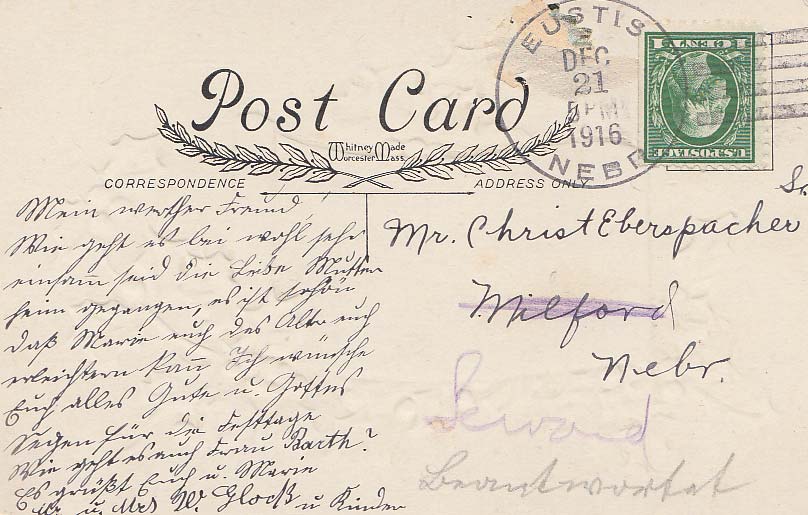 EUSTIS
DEC
21
5 PM
1916
NEBR
U.S. POSTAGE
1 CENT 1
Post Card
Whitney Made
Worcester Mass.
CORRESPONDENCE
ADDRESS ONLY
Mein werther Freund,
Wie geht es bei wohl sehr
einsam seid die Liebe Mutter
heim gegangen, es ist schön
daß Marie euch das Alte euch
erleichtern kann Ich wünsche
Euch alles Gute u. Gottes
Segen für die Festtage
Wie geht es auch Frau Barth?
Es grüßt Euch u. Marie
Mr. u Mrs W. Glock u Kinder
Sr
Mr. Christ Eberspacher
Milford
Nebr.
Seward
Beantwortet